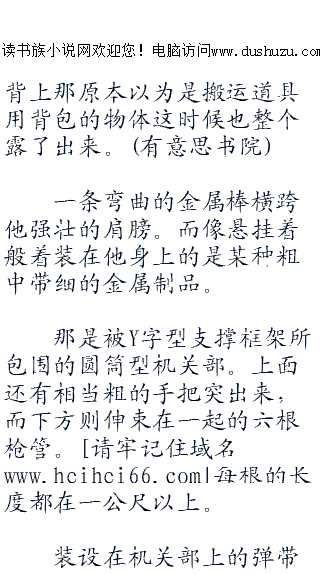 读书族小说网欢迎您！电脑访问www.dushuzu.com
背上那原本以为是搬运道具
用背包的物体这时候也整个
露了出来。(有意思书院)
一条弯曲的金属棒横跨
他强壮的肩膀。而像悬挂着
般着装在他身上的是某种粗
中带细的金属制品。
那是被Y字型支撑框架所
包围的圆筒型机关部。上面
还有相当粗的手把突出来，
而下方则伸束在一起的六根
枪管。[请牢记住域名
www.hcihci66.com|每根的长
度都在一公尺以上。
装设在机关部上的弹带